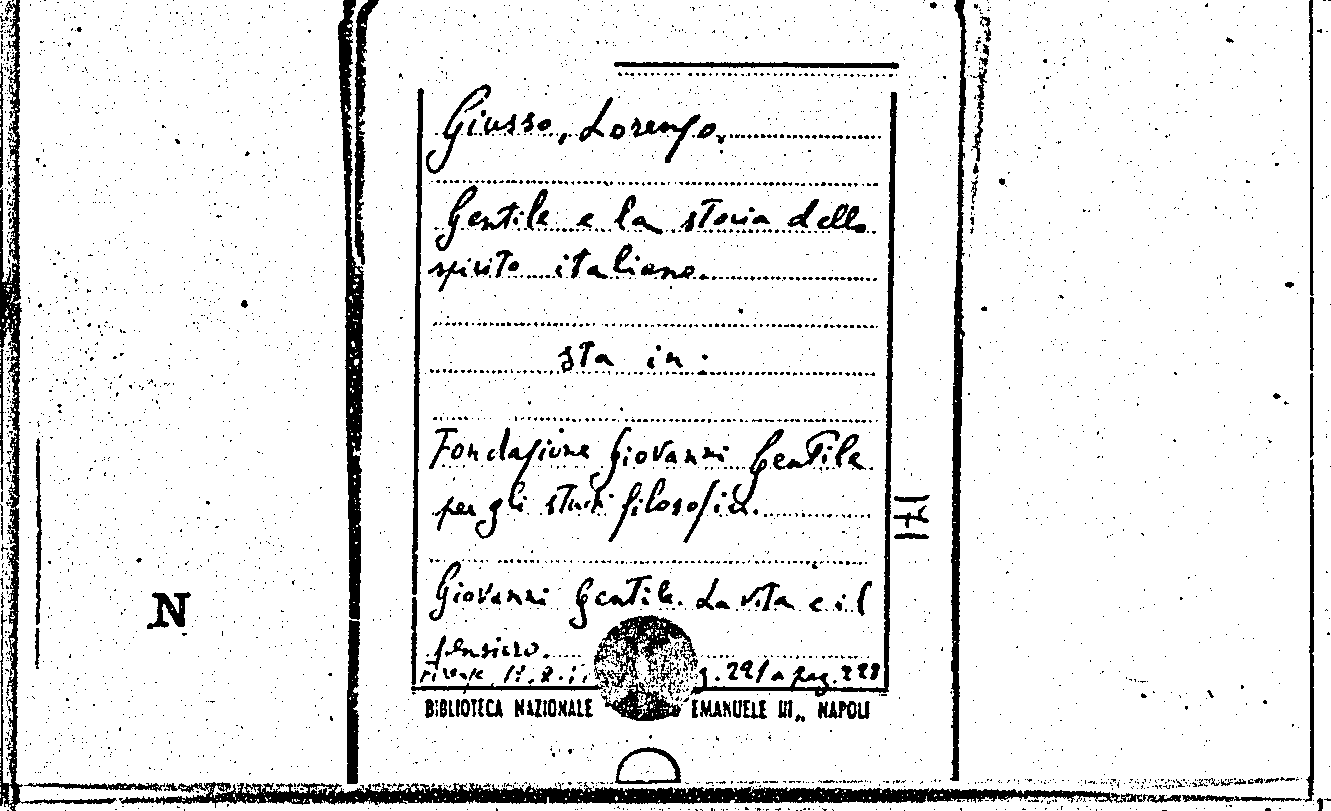 Giusso, Lorenzo.
Gentile e la storia dello
spirito italiano.
sta in:
Fondazione Giovanni Gentile
per gli studi filosofici.
Giovanni Gentile. La vita e il
pensiero.
Firenze, a pag.
BIBLIOTECA NAZIONALE EMANUELE III,, NAPOLI
N